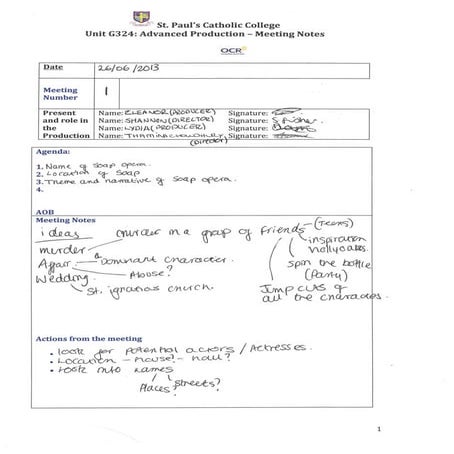 St. Paul's Catholic College
Unit G324: Advanced Production – Meeting Notes
OCR
Date 26/06/2013
Meeting Number 1
Present and role in the Production
Name: ELEANOR (PRODUCER) Signature:
Name: SHANNEN (DIRECTOR) Signature:
Name: LYDIA (PRODUCER) Signature:
Name: THAMINA CHOUDHURY (DIRECTOR) Signature:
Agenda:
1. Name of soap opera.
2. Location of soap
3. Theme and narrative of soap opera.
4.
AOB
Meeting Notes
ideas murder in a group of friends - (Teens)
murder inspiration hollyoaks.
Affair - Dominant character. spin the bottle (Party)
Abuse?
Wedding
St. ignatius church. Jump cuts of all the characters.
Actions from the meeting
• look for potential actors / Actresses.
• Location - house? - hall?
• look into names
Places? streets?
1